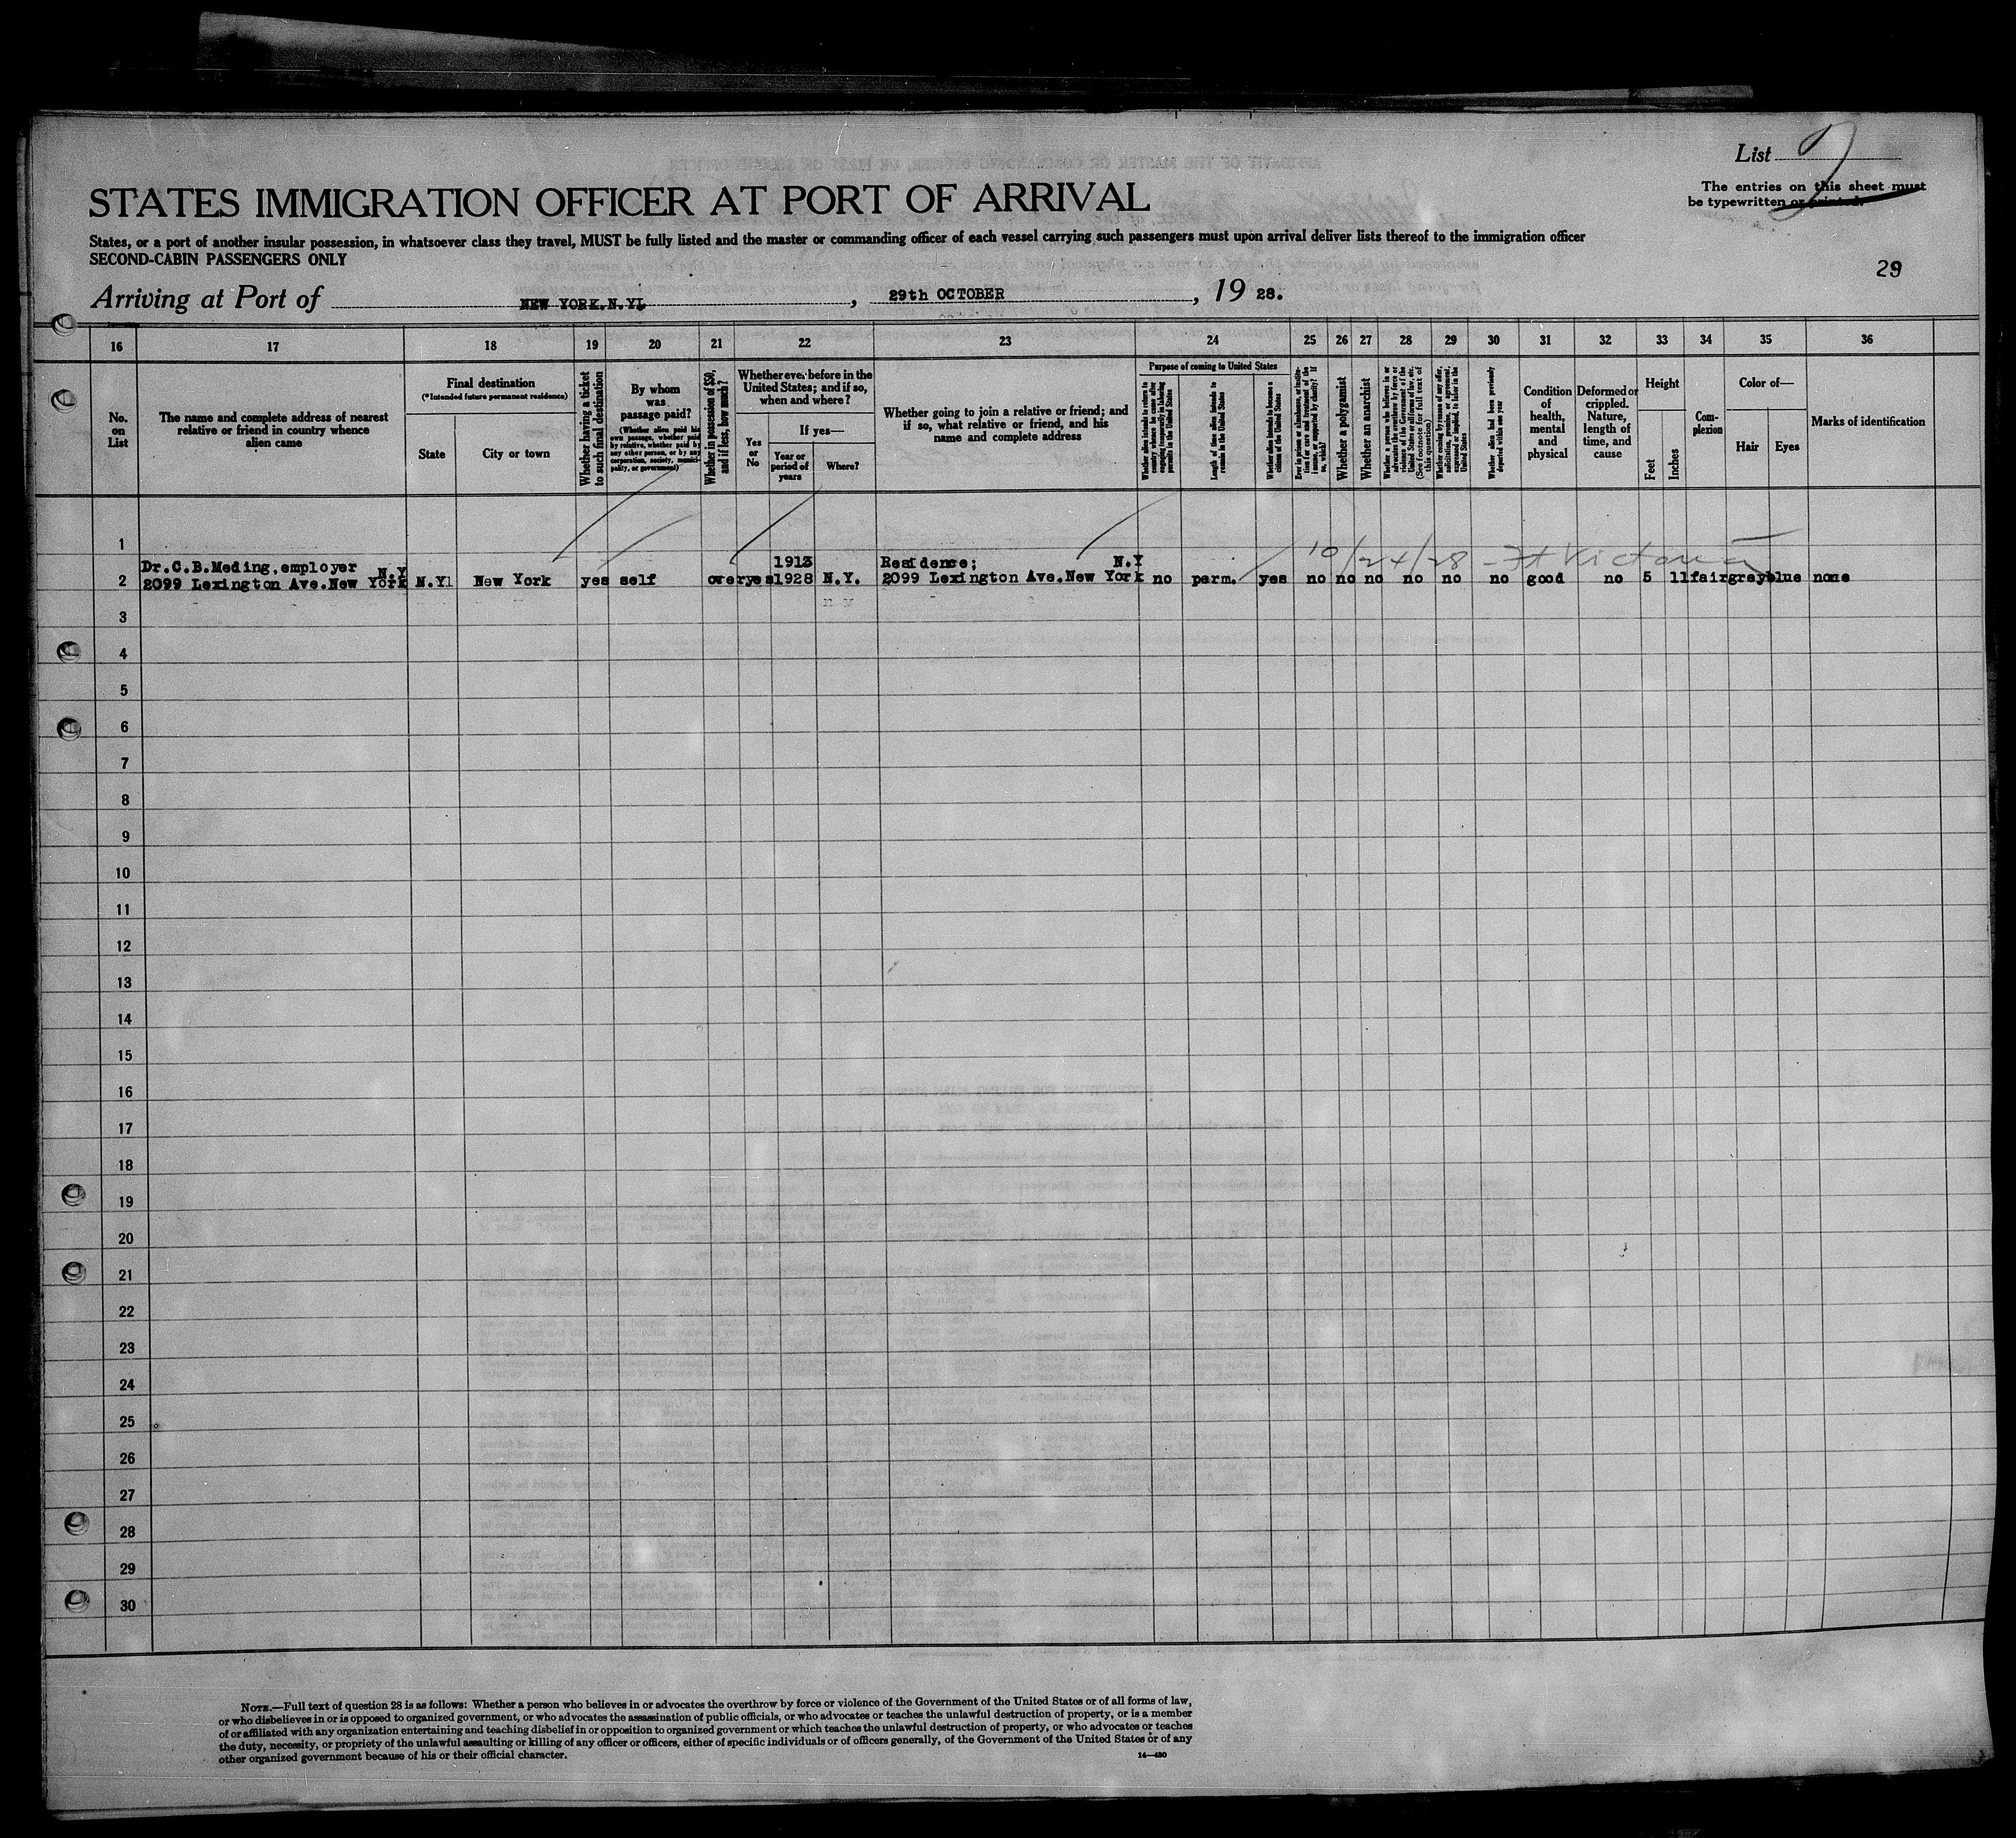 List
STATES IMMIGRATION OFFICER AT PORT OF ARRIVAL
The entries on this sheet must
be typewritten or printed.
States, or a port of another insular possession, in whatsoever class they travel, MUST be fully listed and the master or commanding officer of each vessel carrying such passengers must upon arrival deliver lists thereof to the immigration officer
SECOND-CABIN PASSENGERS ONLY
29
Arriving at Port of NEW YORK.N.YL, 29th OCTOBER, 19 28.
16 17 18 19 20 21 22 23 24 25 26 27 28 29 30 31 32 33 34 35 36
No. on List
The name and complete address of nearest relative or friend in country whence alien came
Final destination
(*Intended future permanent residence)
State
City or town
Whether having a ticket to such final destination
By whom was passage paid?
(Whether alien paid his own passage, whether paid by relative, whether paid by any other person, or by any corporation, society, municipality, or government)
Whether in possession of $50, and if less, how much?
Whether ever before in the United States; and if so, when and where?
Yes or No
If yes—
Year or period of years
Where?
Whether going to join a relative or friend; and if so, what relative or friend, and his name and complete address
Purpose of coming to United States
Length of time alien intends to remain in the United States
Whether alien intends to become a citizen of the United States
Whether a polygamist
Whether an anarchist
Whether alien had been previously deported within one year
Condition of health, mental and physical
Deformed or crippled. Nature, length of time, and cause
Height
Feet
Inches
Com-plexion
Color of—
Hair
Eyes
Marks of identification
1
10/24/28 - Ft Victoria
Dr.C.B.Meding,employer N.Y
1913
Residence; N.Y
2 2099 Lexington Ave.New York N.Yl New York yes self over yes 1928 N.Y. 2099 Lexington Ave.New York no parm. yes no no no no no no good no 5 11 fair grey blue none
3
4
5
6
7
8
9
10
11
12
13
14
15
16
17
18
19
20
21
22
23
24
25
26
27
28
29
30
NOTE.—Full text of question 28 is as follows: Whether a person who believes in or advocates the overthrow by force or violence of the Government of the United States or of all forms of law,
or who disbelieves in or is opposed to organized government, or who advocates the assassination of public officials, or who advocates or teaches the unlawful destruction of property, or is a member
of or affiliated with any organization entertaining and teaching disbelief in or opposition to organized government or which teaches the unlawful destruction of property, or who advocates or teaches
the duty, necessity, or propriety of the unlawful assaulting or killing of any officer or officers, either of specific individuals or of officers generally, of the Government of the United States or of any
other organized government because of his or their official character.
14—430